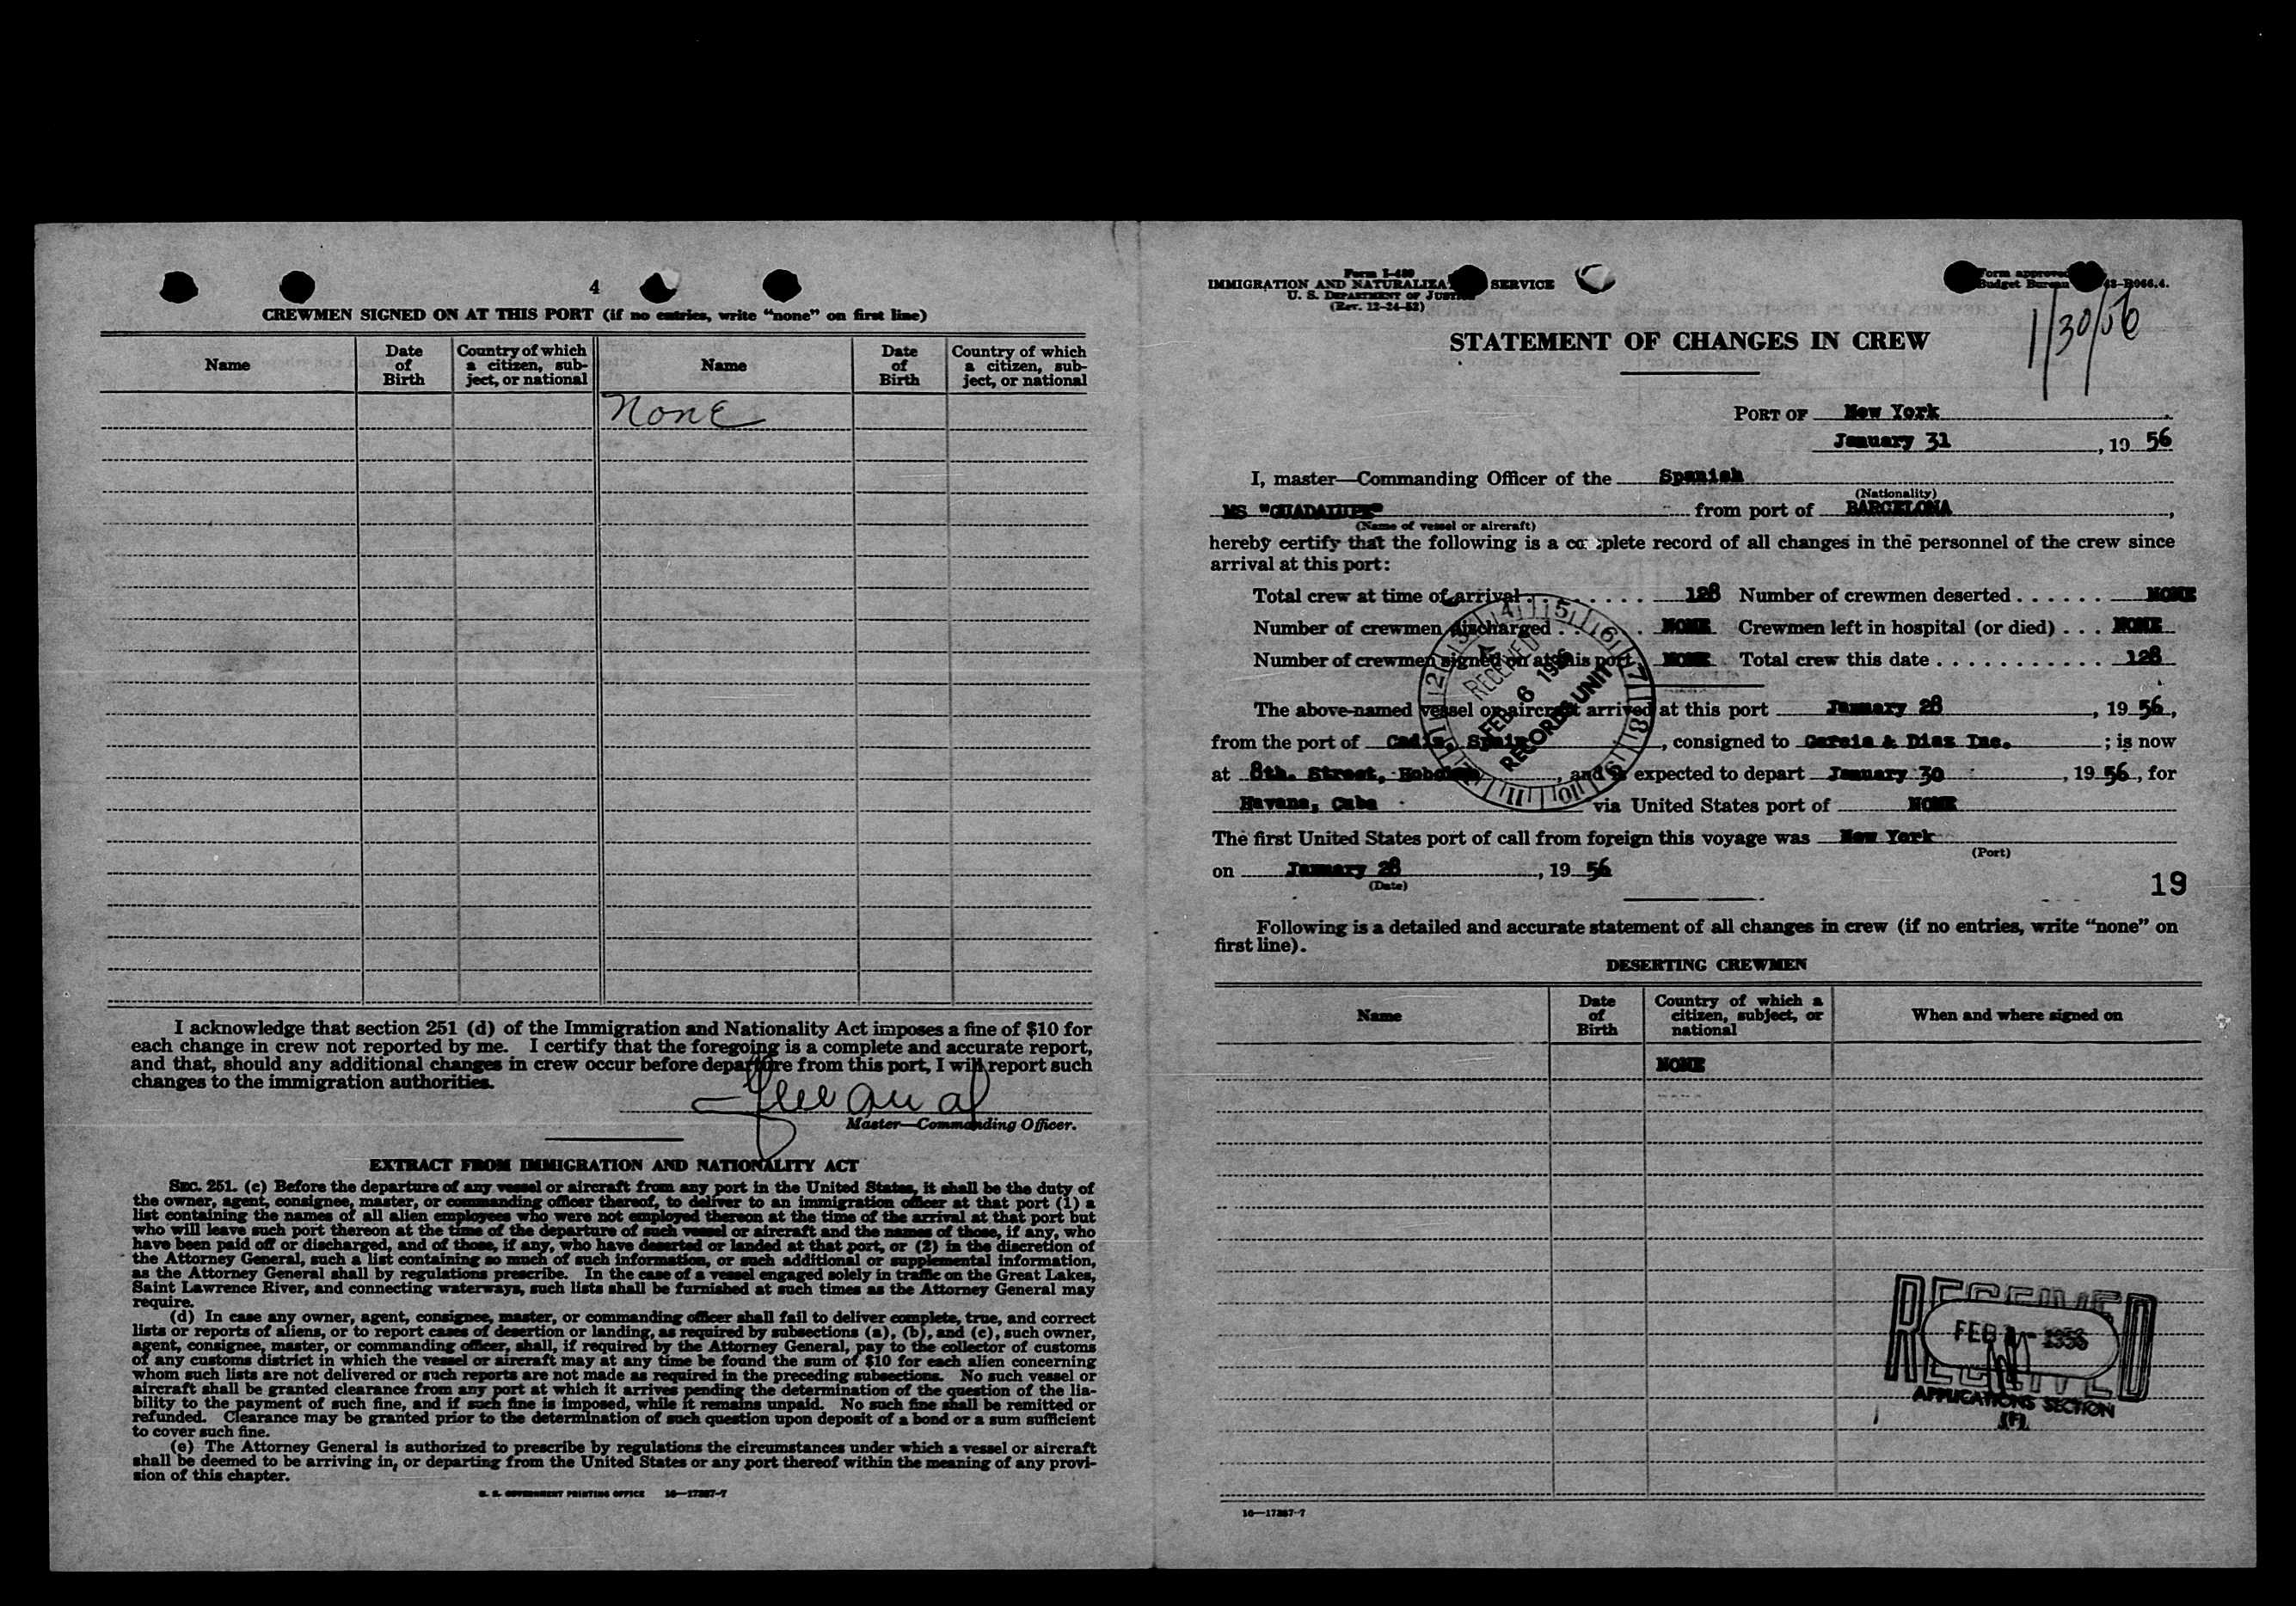 4
CREWMEN SIGNED ON AT THIS PORT (if no entries, write "none" on first line)
Name
Date of Birth
Country of which a citizen, subject, or national
Name
Date of Birth
Country of which a citizen, subject, or national
None
I acknowledge that section 251 (d) of the Immigration and Nationality Act imposes a fine of $10 for
each change in crew not reported by me. I certify that the foregoing is a complete and accurate report,
and that, should any additional changes in crew occur before departure from this port, I will report such
changes to the immigration authorities.
Master—Commanding Officer.
EXTRACT FROM IMMIGRATION AND NATIONALITY ACT
SEC. 251. (c) Before the departure of any vessel or aircraft from any port in the United States, it shall be the duty of
the owner, agent, consignee, master, or commanding officer thereof, to deliver to an immigration officer at that port (1) a
list containing the names of all alien employees who were not employed thereon at the time of the arrival at that port but
who will leave such port thereon at the time of the departure of such vessel or aircraft and the names of those, if any, who
have been paid off or discharged, and of those, if any, who have deserted or landed at that port, or (2) in the discretion of
the Attorney General, such a list containing so much of such information, or such additional or supplemental information,
as the Attorney General shall by regulations prescribe. In the case of a vessel engaged solely in traffic on the Great Lakes,
Saint Lawrence River, and connecting waterways, such lists shall be furnished at such times as the Attorney General may
require.
(d) In case any owner, agent, consignee, master, or commanding officer shall fail to deliver complete, true, and correct
lists or reports of aliens, or to report cases of desertion or landing, as required by subsections (a), (b), and (c), such owner,
agent, consignee, master, or commanding officer, shall, if required by the Attorney General, pay to the collector of customs
of any customs district in which the vessel or aircraft may at any time be found the sum of $10 for each alien concerning
whom such lists are not delivered or such reports are not made as required in the preceding subsections. No such vessel or
aircraft shall be granted clearance from any port at which it arrives pending the determination of the question of the lia-
bility to the payment of such fine, and if such fine is imposed, while it remains unpaid. No such fine shall be remitted or
refunded. Clearance may be granted prior to the determination of such question upon deposit of a bond or a sum sufficient
to cover such fine.
(e) The Attorney General is authorized to prescribe by regulations the circumstances under which a vessel or aircraft
shall be deemed to be arriving in, or departing from the United States or any port thereof within the meaning of any provi-
sion of this chapter.
U. S. GOVERNMENT PRINTING OFFICE 16—17287-7
Form I-489
IMMIGRATION AND NATURALIZA SERVICE
U. S. DEPARTMENT OF JUSTICE
(Rev. 12-24-52)
Form approved
Budget Bureau 43-R066.4.
1/30/56
STATEMENT OF CHANGES IN CREW
PORT OF New York
January 31, 1956
I, master—Commanding Officer of the Spanish
(Nationality)
MS "GUADALUPE" from port of BARCELONA,
(Name of vessel or aircraft)
hereby certify that the following is a complete record of all changes in the personnel of the crew since
arrival at this port:
Total crew at time of arrival . . . . . . 128 Number of crewmen deserted . . . . . . NONE
Number of crewmen discharged . . . NONE Crewmen left in hospital (or died) . . . NONE
Number of crewmen signed on at this port NONE Total crew this date . . . . . . . . . . . . 128
RECEIVED
FEB 6 1956
RECORDS UNIT
The above-named vessel or aircraft arrived at this port January 28, 1956,
from the port of Cadiz, Spain, consigned to Garcia & Diaz Inc. ; is now
at 8th. Street, Hoboken, and is expected to depart January 30, 1956, for
Havana, Cuba via United States port of NONE
The first United States port of call from foreign this voyage was New York
(Port)
on January 28, 1956
(Date)
19
Following is a detailed and accurate statement of all changes in crew (if no entries, write "none" on
first line).
DESERTING CREWMEN
Name
Date of Birth
Country of which a citizen, subject, or national
When and where signed on
NONE
RECEIVED
FEB 1956
APPLICATIONS SECTION
16—17287-7